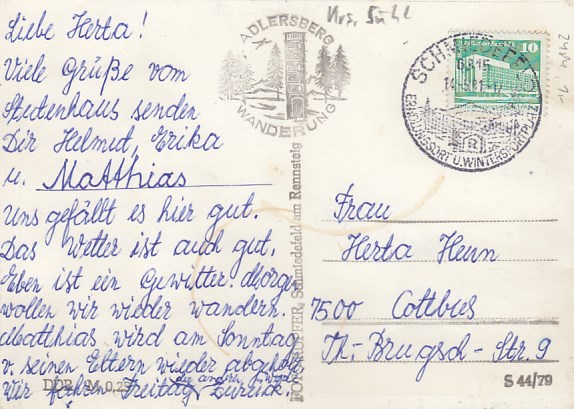 Liebe Herta!
Viele Grüße vom
Stutenhaus senden
Dir Helmut, Erika
u. Matthias
Uns gefällt es hier gut.
Das Wetter ist auch gut.
Eben ist ein Gewitter. Morgen
wollen wir wieder wandern.
Matthias wird am Sonntag
v. seinen Eltern wieder abgeholt
wir fahren Freitag die andere Woche zurück.
DDR M 0,2
ADLERSBERG
WANDERUNG
Krs. Suhl
10
SCHMIEDEFELD
6315
ERHOLUNGSORT U. WINTERSPORTPLATZ
Schmiedefeld am Rennsteig
Frau
Herta Hern
7500 Cottbus
Th.-Brugsch-Str. 9
S 44/79